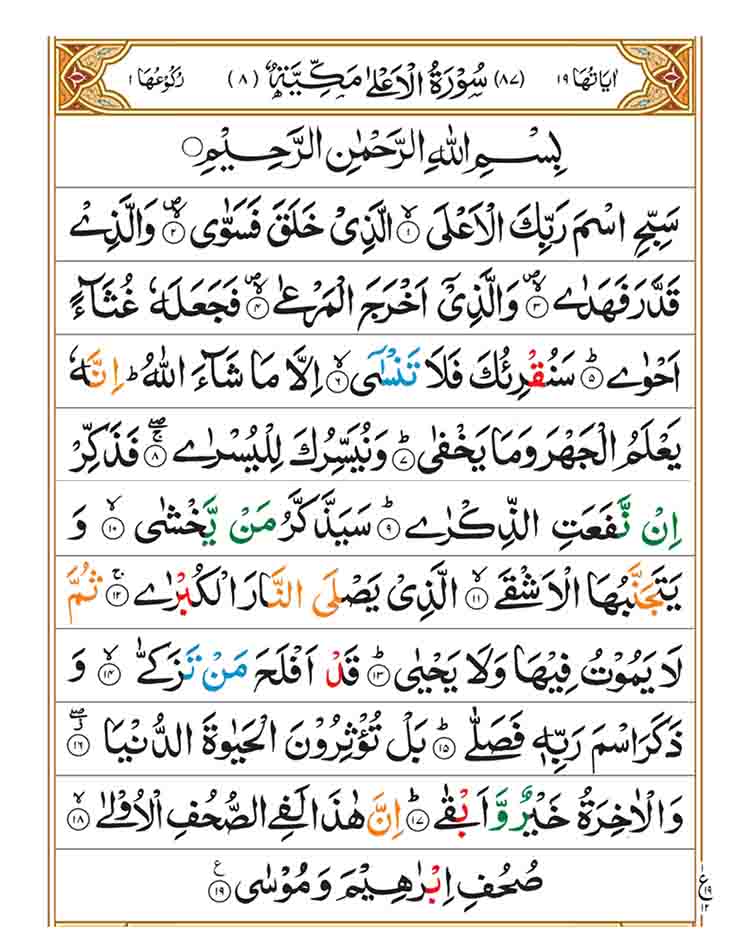 اٰيَاتُهَا ١٩ (٨٧) سُوْرَةُ الْاَعْلٰى مَكِّيَّةٌ (٨) رُكُوْعُهَا ١
بِسْمِ اللّٰهِ الرَّحْمٰنِ الرَّحِيْمِ ۝
سَبِّحِ اسْمَ رَبِّكَ الْاَعْلَى ۙ‏﴿۱﴾ الَّذِىْ خَلَقَ فَسَوّٰى ۙ ‏﴿۲﴾ وَالَّذِىْ
قَدَّرَ فَهَدٰى ۙ ‏﴿۳﴾ وَالَّذِىْۤ اَخْرَجَ الْمَرْعٰى ۙ ‏﴿۴﴾ فَجَعَلَهٗ غُثَآءً
اَحْوٰىؕ‏ ﴿۵﴾ سَنُقْرِئُكَ فَلَا تَنْسٰٓى ۙ‏﴿۶﴾ اِلَّا مَا شَآءَ اللّٰهُ‌ؕ اِنَّهٗ
يَعْلَمُ الْجَهْرَ وَمَا يَخْفٰىؕ‏ ﴿۷﴾ وَنُيَسِّرُكَ لِلْيُسْرٰى ‌ۖۚ‏ ﴿۸﴾ فَذَكِّرْ
اِنْ نَّفَعَتِ الذِّكْرٰىؕ‏ ﴿۹﴾ سَيَذَّكَّرُ مَنْ يَّخْشٰىۙ‏ ﴿۱۰﴾ وَ
يَتَجَنَّبُهَا الْاَشْقَىۙ‏ ﴿۱۱﴾ الَّذِىْ يَصْلَى النَّارَ الْكُبْرٰى‌ۚ‏ ﴿۱۲﴾ ثُمَّ
لَا يَمُوْتُ فِيْهَا وَلَا يَحْيٰىؕ‏ ﴿۱۳﴾ قَدْ اَفْلَحَ مَنْ تَزَكّٰىۙ‏ ﴿۱۴﴾ وَ
ذَكَرَ اسْمَ رَبِّهٖ فَصَلّٰى‌ؕ‏ ﴿۱۵﴾ بَلْ تُؤْثِرُوْنَ الْحَيٰوةَ الدُّنْيَا ۖ‏ ﴿۱۶﴾
وَالْاٰخِرَةُ خَيْرٌ وَّ اَبْقٰىؕ‏ ﴿۱۷﴾ اِنَّ هٰذَا لَفِى الصُّحُفِ الْاُوْلٰىۙ‏ ﴿۱۸﴾
صُحُفِ اِبْرٰهِيْمَ وَمُوْسٰى ﴿۱۹﴾ ع
١
ع ١٩
١٢